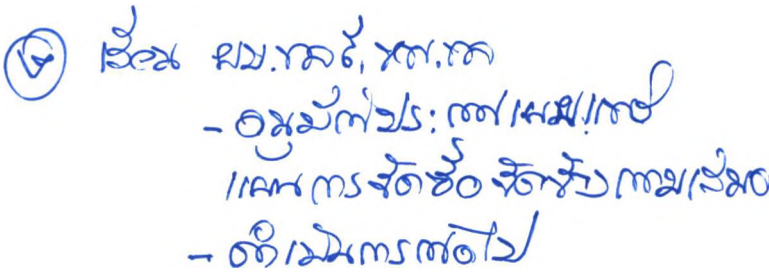 ② เรียน ผบ.
- อนุมัติประกาศเผยแพร่
แผนการจัดซื้อจัดจ้างตามเสนอ
- ดำเนินการต่อไป